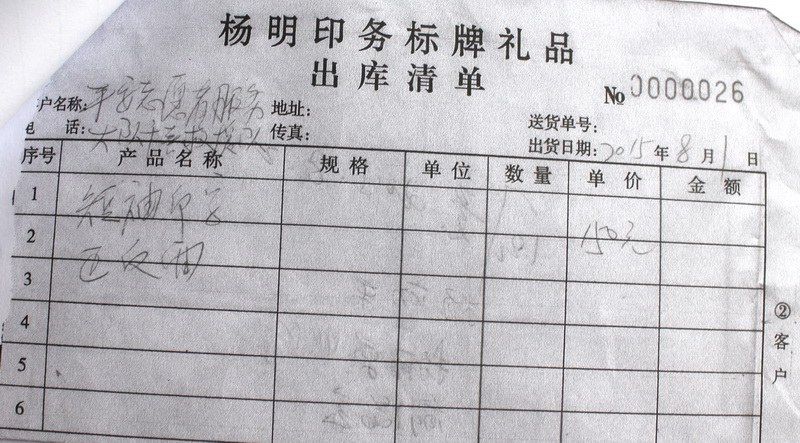 杨明印务标牌礼品
出库清单
№ 0000026
户名称: 平安志愿者服务
地址:
送货单号:
电 话: 大队十支救援队
传真:
出货日期: 2015 年 8 月 1 日
序号 产品名称 规格 单位 数量 单价 金额
1 短袖印字
2 正反面 150元
3
4
5
6
②客户